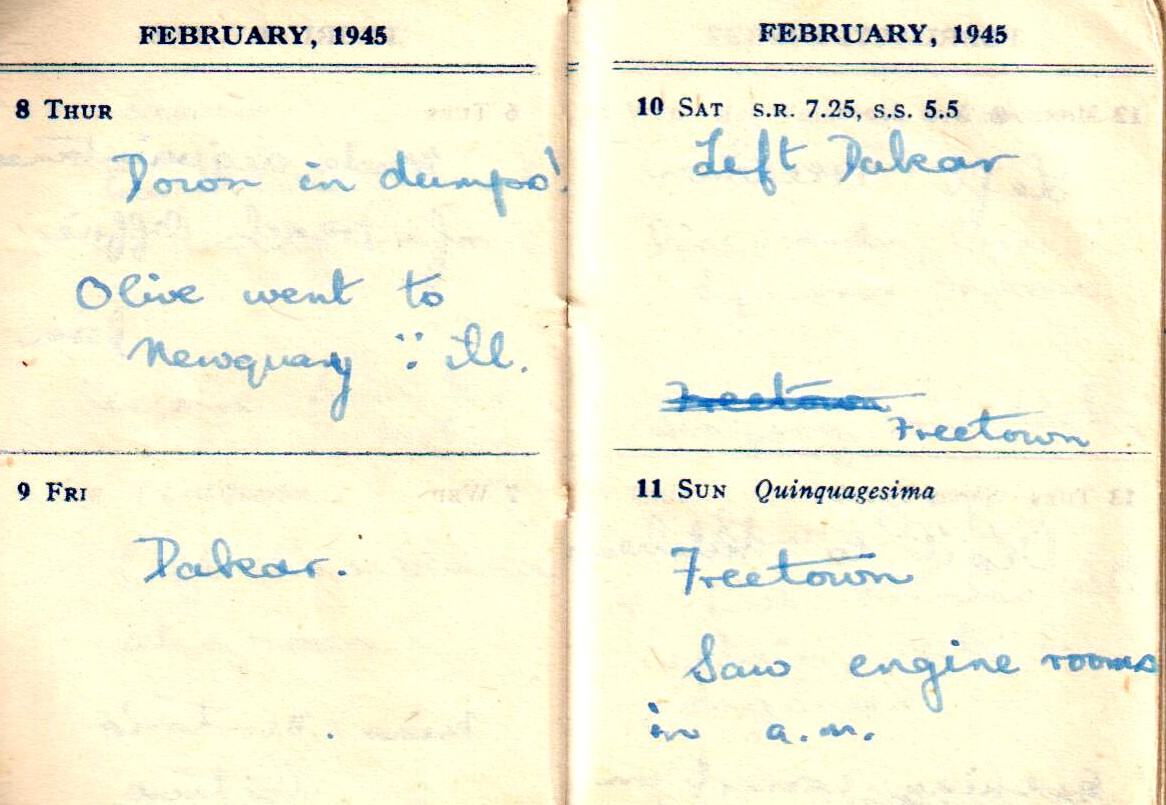 FEBRUARY, 1945
8 THUR
Down in dumps!
Olive went to
Newquay ∵ ill.
9 FRI
Dakar.
FEBRUARY, 1945
10 SAT S.R. 7.25, S.S. 5.5
Left Dakar
Freetown
Freetown
11 SUN Quinquagesima
Freetown
Saw engine rooms
in a.m.